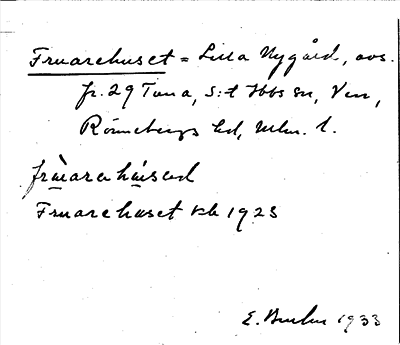 Fruarehuset = Lilla Nygård, avs.
fr. 29 Tuna, S:t Ibbs sn, Ven,
Rönnebergs hd, Mlm. l.
frùarehúsed
Fruarehuset kb 1923
E. 1933